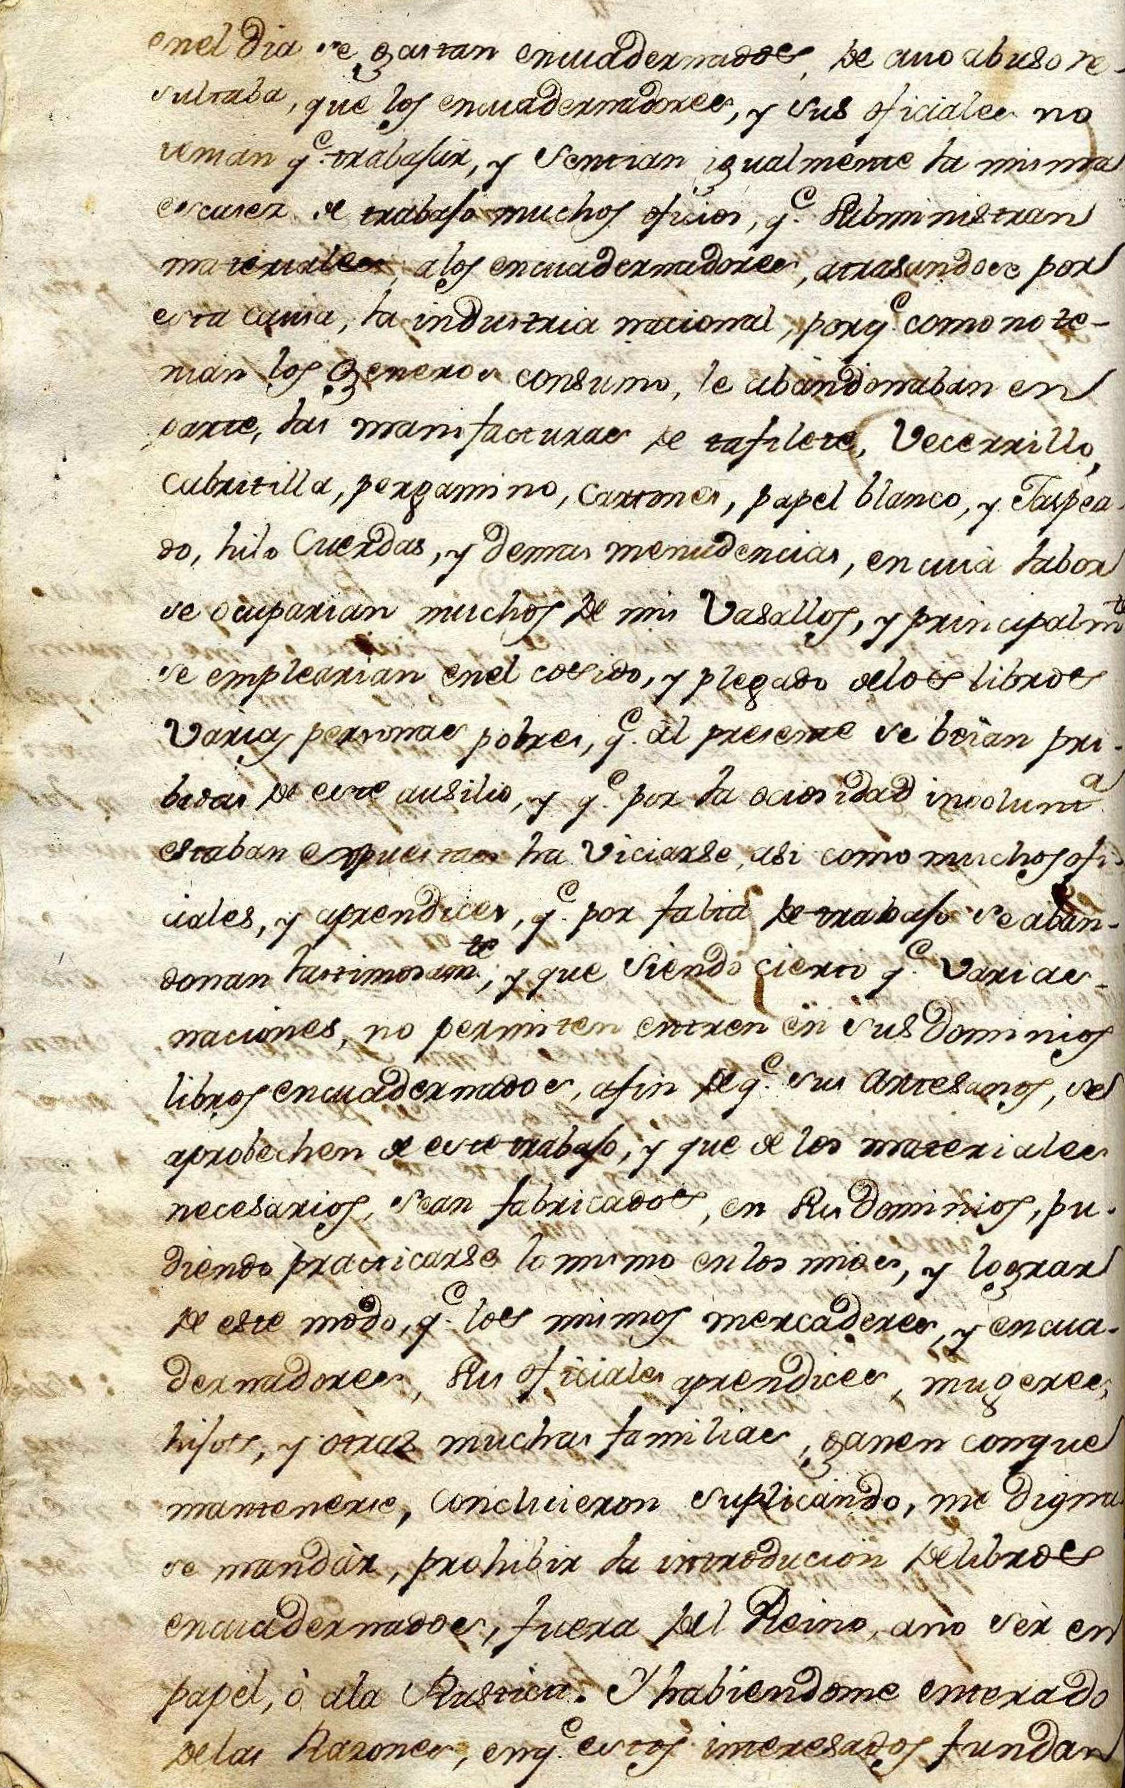 enel dia se gastan encuadernados, de cuio abuso re-
sultaba, que los encuadernadores, y sus oficiales no
tenian q.e trabajar, y sentian igualmente la misma
escasez de trabajo muchos oficios, q.e subministran
materiales, alos encuadernadores, atrasandose por
esta causa, la industria nacional, porq.e como no te-
nian los generos consumo, se abandonaban en
parte, las manifacturas de tafilete, Vecerrillo,
Cabritilla, pergamino, Cartones, papel blanco, y Jaspea-
do, hilo Cuerdas, y demas menudencias, en cuia labor
se ocuparian muchos de mis Vasallos, y principalm.te
se emplearian enel cosido, y plegado delos libros
Varias personas pobres, q.e al presente se beian pri-
badas de este ausilio, y q.e por la ociosidad involunt.a
estaban expuestas ha Viciarse, asi como muchos ofi-
ciales, y aprendices, q.e por falta de trabajo se aban-
donan lastimosam.te, y que siendo cierto q.e Varias-
naciones, no permiten entren en sus Dominios
libros encuadernados, afin de q.e sus Artesanos, se
aprobechen de este trabajo, y que de los materiales
necesarios, sean fabricados, en sus Dominios, pu-
diendo practicarse lo mismo en los mios, y lograr
de este modo, q.e los mismos mercaderes, y encua-
dernadores, sus oficiales aprendices, mugeres,
hijos, y otras muchas familias, ganen conque
mantenerse, concluieron suplicando, me digna
se mandàr, prohibir la introducion de libros
encuadernados, fuera del Reino, ano sèr en
papel, ò ala Rustica. Y habiendome enterado
delas Razones, enq.e estos interesados fundan